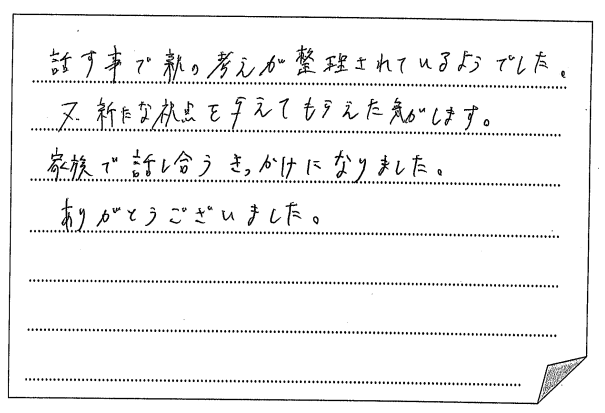 話す事で親の考えが整理されているようでした。
又、新たな視点を与えてもらえた気がします。
家族で話し合うきっかけになりました。
ありがとうございました。